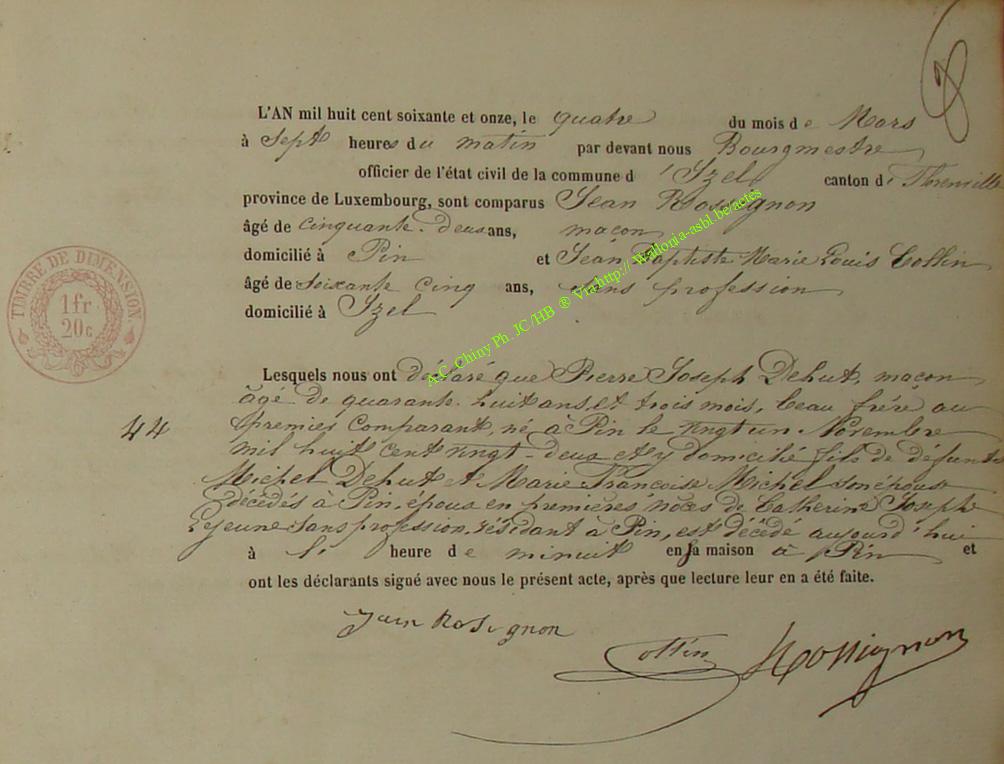 8
L'AN mil huit cent soixante et onze, le quatre du mois de Mars
à Sept heures du matin par devant nous Bourgmestre
officier de l'état civil de la commune d'Izel canton de Florenville
province de Luxembourg, sont comparus Jean Rossignon
âgé de cinquante-deux ans, maçon
domicilié à Pin et Jean Baptiste Marie Louis Collin
âgé de soixante cinq ans, sans profession
domicilié à Izel
TIMBRE DE DIMENSION.
1 fr
20 c
Lesquels nous ont déclaré que Pierre Joseph Dehut, maçon
âgé de quarante-huit ans, et trois mois, beau frère au
44
premier comparant, né à Pin le vingt un Novembre
mil huit cent vingt-deux et y domicilié fils de défunts
Michel Dehut et Marie Françoise Michel son épouse
décédés à Pin, époux en premières noces de Catherine Joseph
Lejeune sans profession, résidant à Pin, est décédé aujourd'hui
à l' heure de minuit en sa maison à Pin et
ont les déclarants signé avec nous le présent acte, après que lecture leur en a été faite.
Jean Rosignon
Collin
Rossignon
A.C. Chiny Ph. JC/HB ® Via http://Wallonia-asbl.be/actes